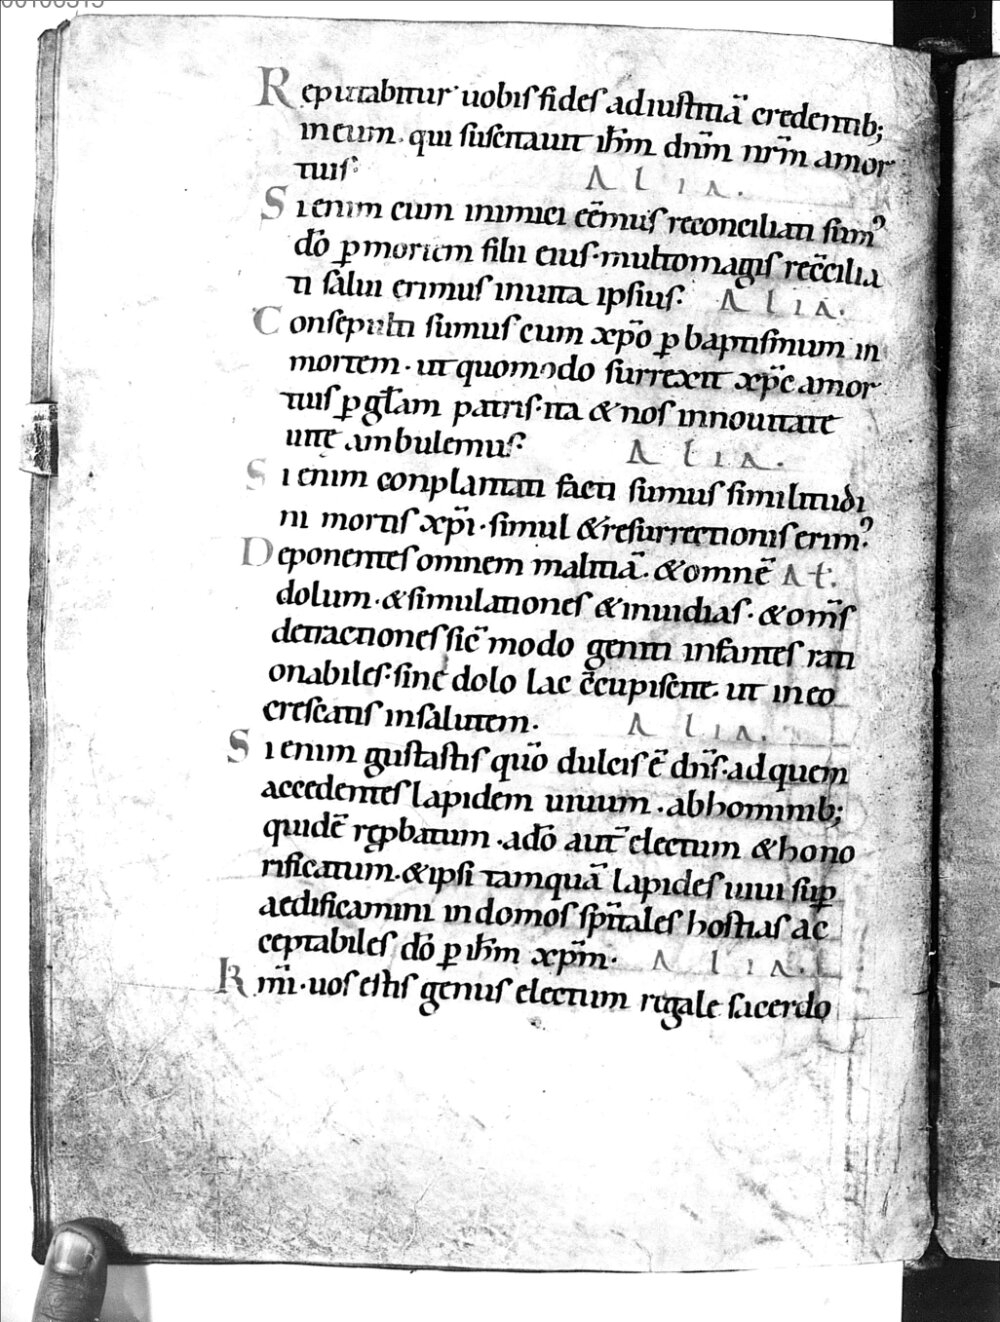 Reputabitur uobis fides adiustitiā credentib;
ineum. qui suscitauit ih̄m dn̄m nr̄m amor
tuis. ALIA.
Si enim cum inimici eēmus reconciliati sum⁹
dō ꝑ mortem filii eius. multomagis recc̄ilia
ti salui erimus inuita ipsius. ALIA.
Consepulti sumus cum xp̄o ꝑ baptismum in
mortem. ut quomodo surrexit xp̄c amor
tuis ꝑ gl̄am patris. ita & nos innouitate
uitę ambulemus. ALIA.
Si enim conplantati facti sumus similitudi
ni mortis xp̄i. simul & resurrectionis erim⁹.
Deponentes omnem malitiā. & omnē At.
dolum. & simulationes & inuidias. & om̄s
detractiones sic̄ modo geniti infantes rati
onabiles. sine dolo lac c̄cupiscite. ut ineo
crescatis insalutem. ALIA.
Si enim gustastis quō dulcis ē dn̄s. ad quem
accedentes lapidem uiuum. abhominib;
quidē rep̱batum. adō aut̄ electum & hono
rificatum. & ipsi tamquā lapides uiui suꝑ
aedificamini indomos sp̄itales hostias ac
ceptabiles dō ꝑ ih̄m xp̄m. ALIA.
Km̄i. uos estis genus electum regale sacerdo